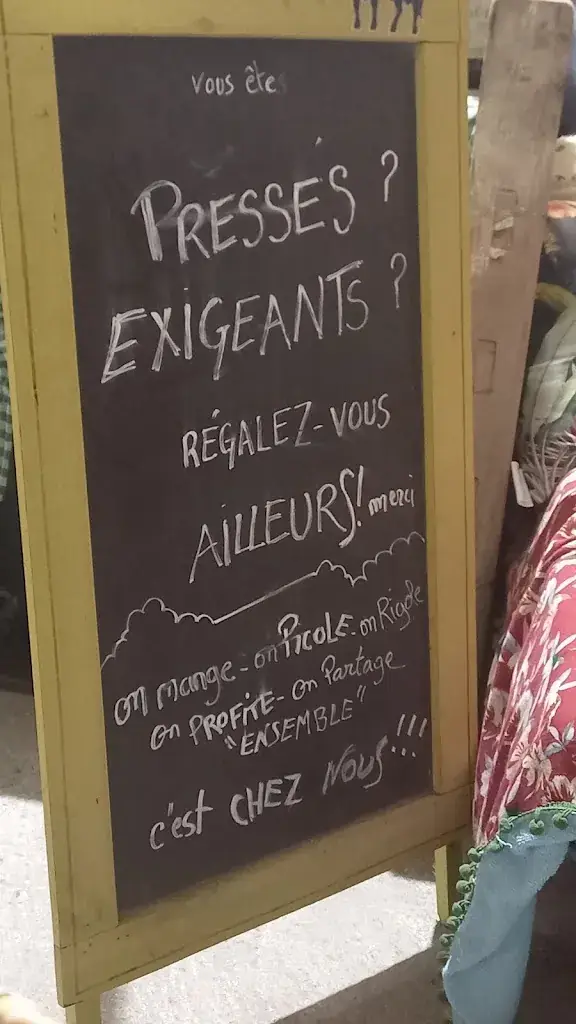 vous êtes
PRESSÉS ?
EXIGEANTS ?
RÉGALEZ-VOUS
AILLEURS! merci
on mange - on PICOLE - on Rigole
on PROFITE - on Partage
"ENSEMBLE"
c'est CHEZ NOUS!!!